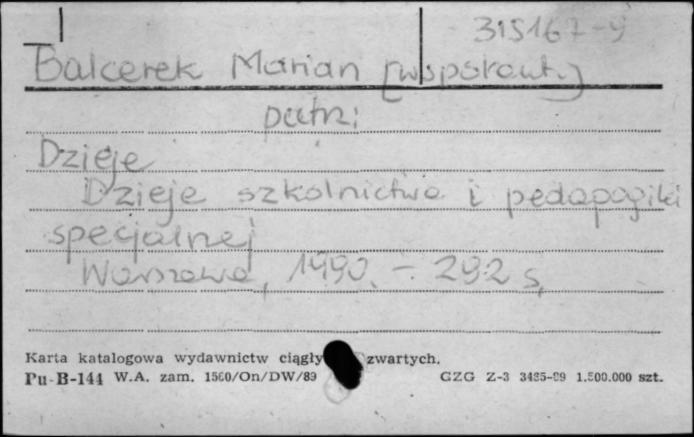 315167-9
Balcerek Marian [współaut.]
patrz:
Dzieje
Dzieje szkolnictwa i pedagogiki
specjalnej
Warszawa, 1990. – 292 s.
Karta katalogowa wydawnictw ciągły zwartych.
Pu-B-144 W.A. zam. 1560/On/DW/89 GZG Z-3 3485-89 1.500.000 szt.